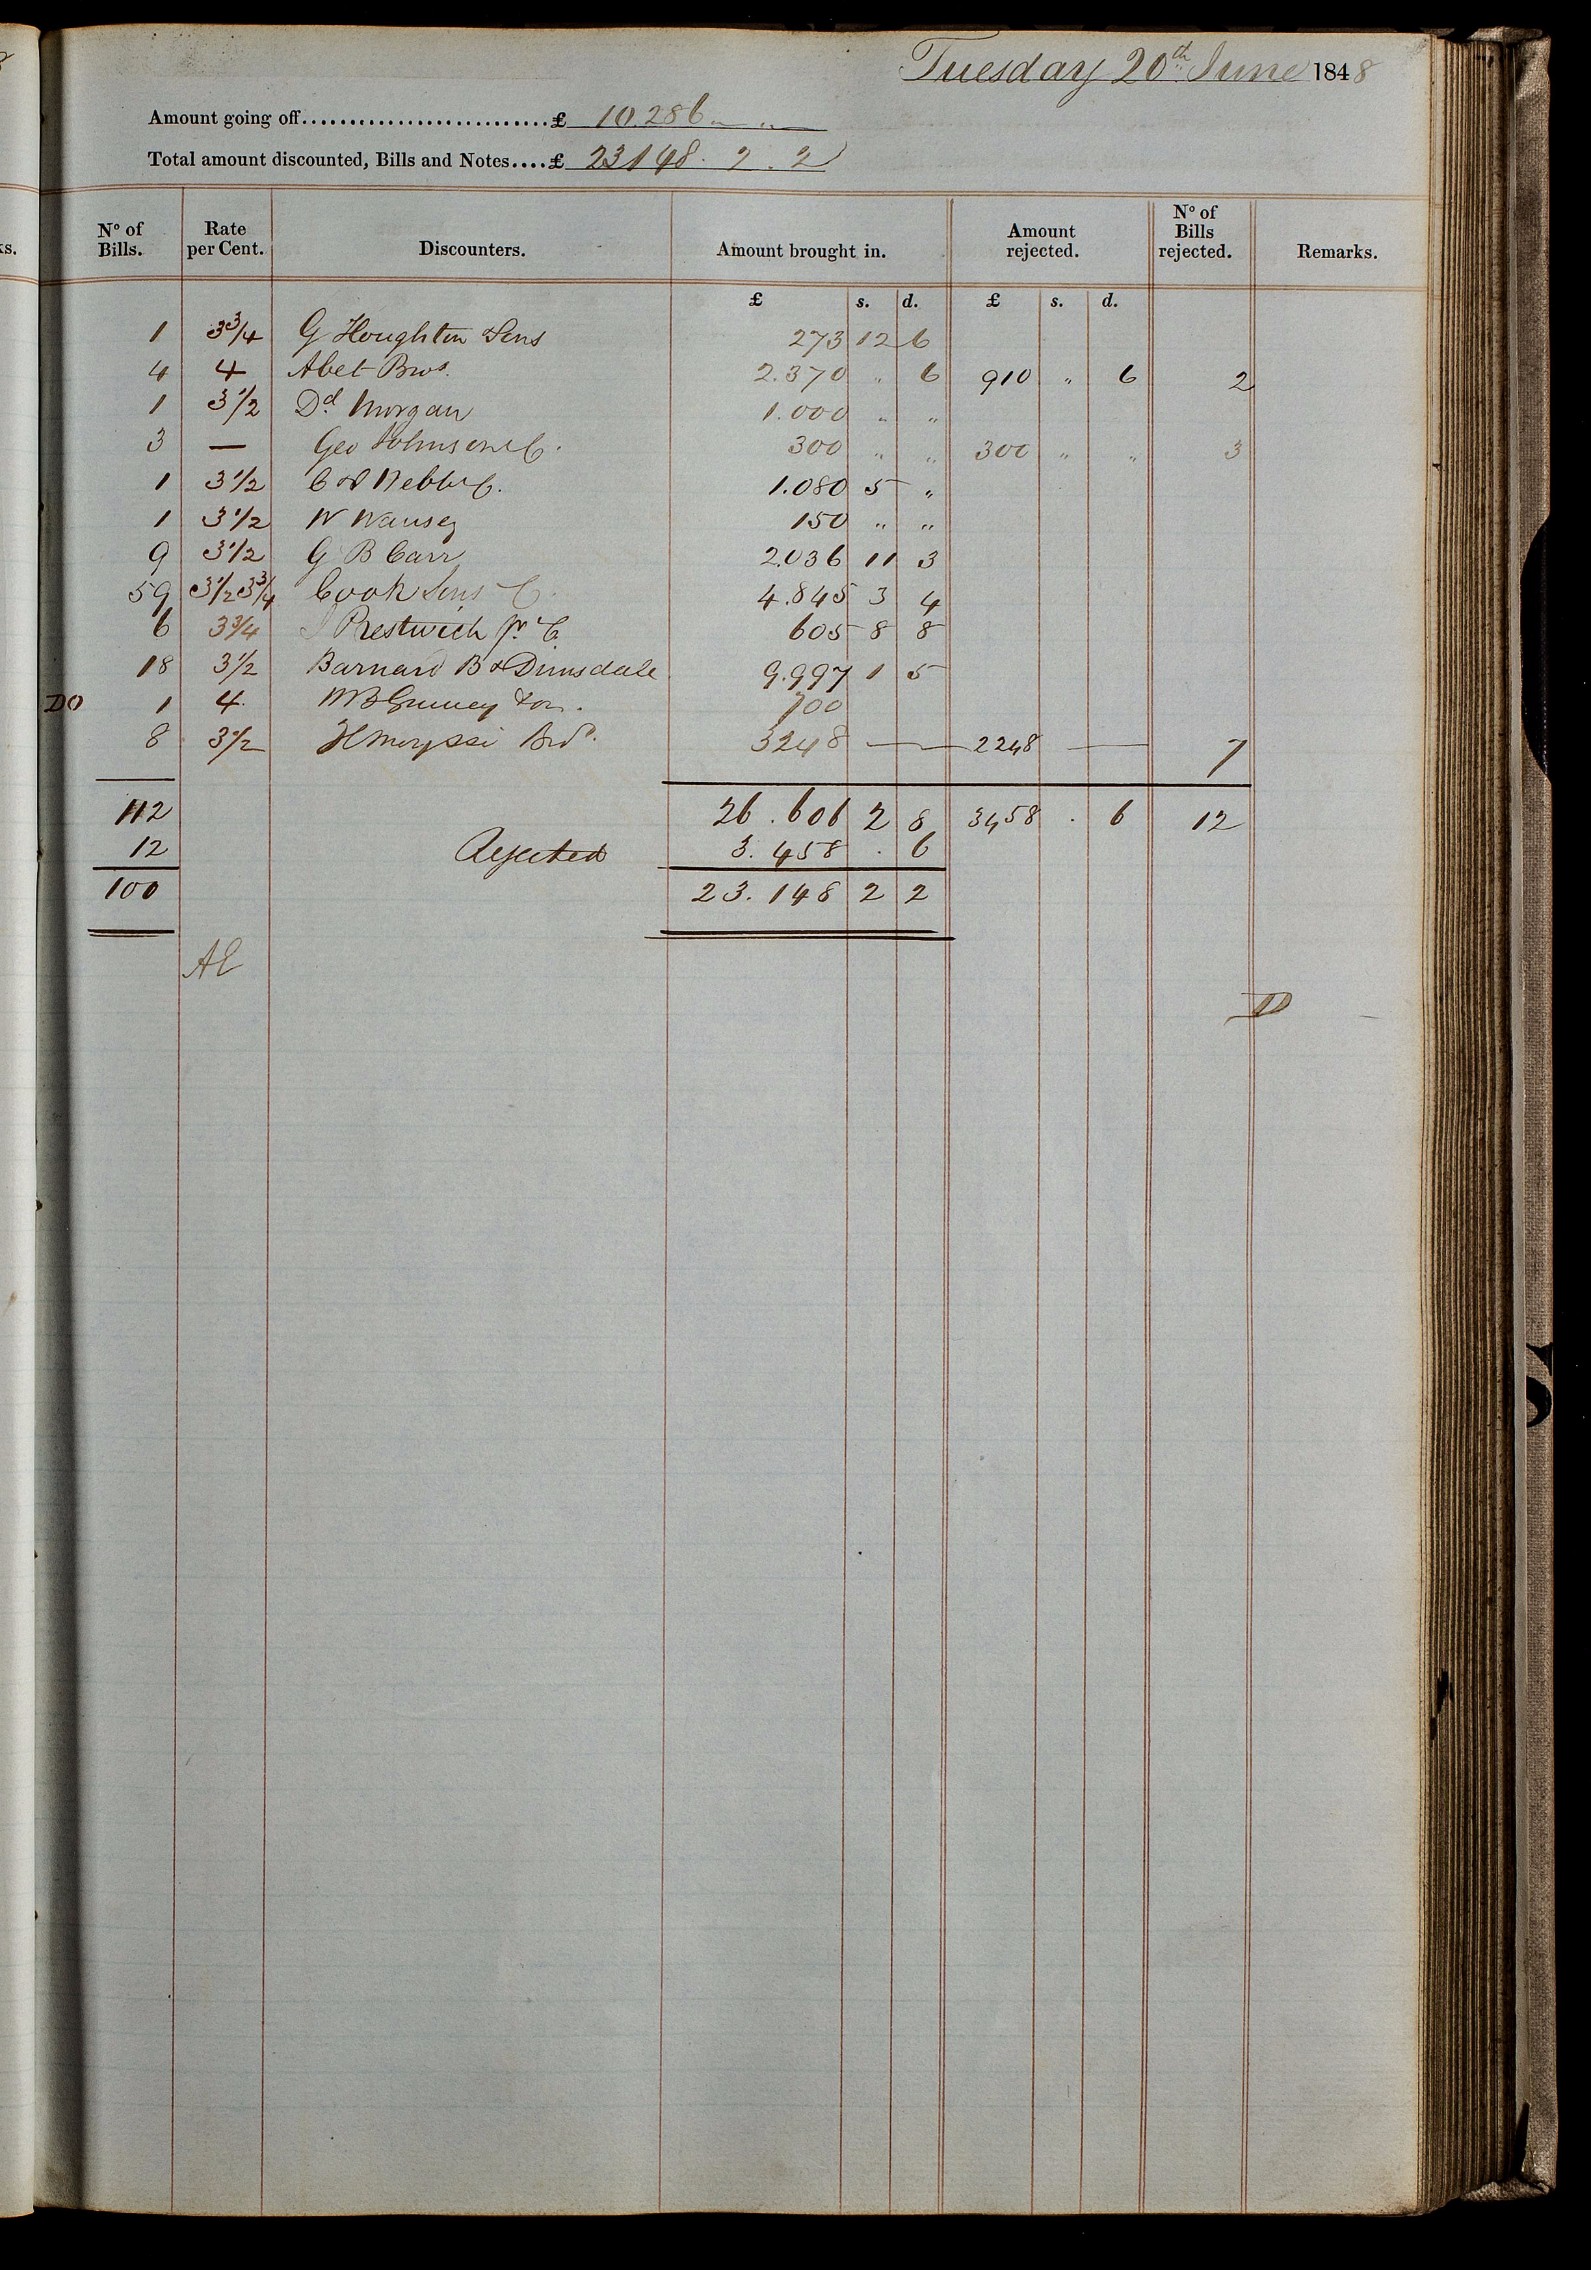 Tuesday 20th June 1848
Amount going off..........................£ 10.286 " "
Total amount discounted, Bills and Notes....£ 23148. 2. 2
No of Bills. Rate per Cent. Discounters. Amount brought in. Amount rejected. No of Bills rejected. Remarks.
£ s. d. £ s. d.
1 3 3/4 G Houghton & Sons 273 12 6
4 4 Abet Bros. 2.370 " 6 910 " 6 2
1 3 1/2 Dd Morgan 1.000 " "
3 — Geo Johnson & C. 300 " " 300 " " 3
1 3 1/2 C & Webb & C. 1.080 5 "
1 3 1/2 W Wansey 150 " "
9 3 1/2 G B Carr 2.036 11 3
59 3 1/2 3 3/4 Cook Sons & C. 4.845 3 4
6 3 3/4 Prestwich Jr. & C. 605 8 8
18 3 1/2 Barnard B & Dimsdale 9.997 1 5
DO 1 4 WB Gurney & Son. 700
8 3 1/2 Bros. 3248 — 2248 — 7
112 26.606 2 8 3458 . 6 12
12 Rejected 3.458 . 6
100 23.148 2 2
AE